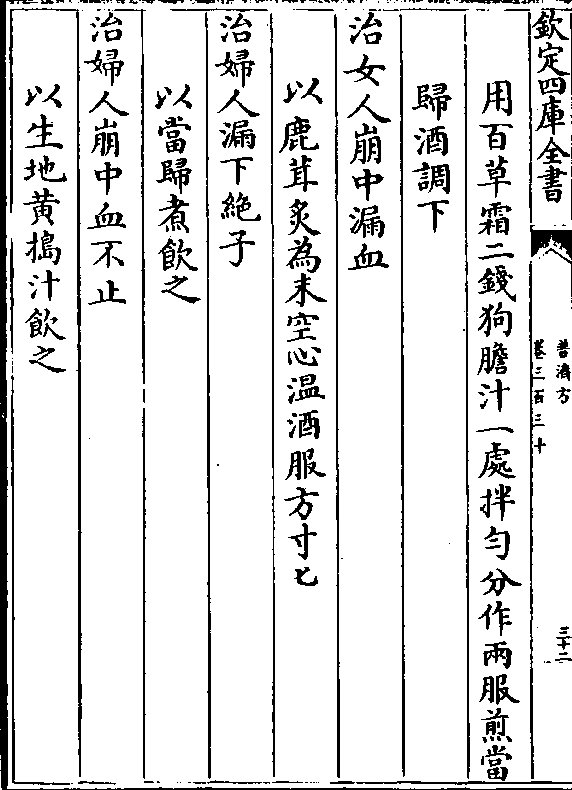 欽定四庫全書
普濟方
卷三百三十
三十二
用百草霜二錢狗膽汁一處拌勻分作兩服煎當
歸酒調下
治女人崩中漏血
以鹿茸炙為末空心温酒服方寸匕
治婦人漏下絶子
以當歸煮飲之
治婦人崩中血不止
以生地黄搗汁飲之